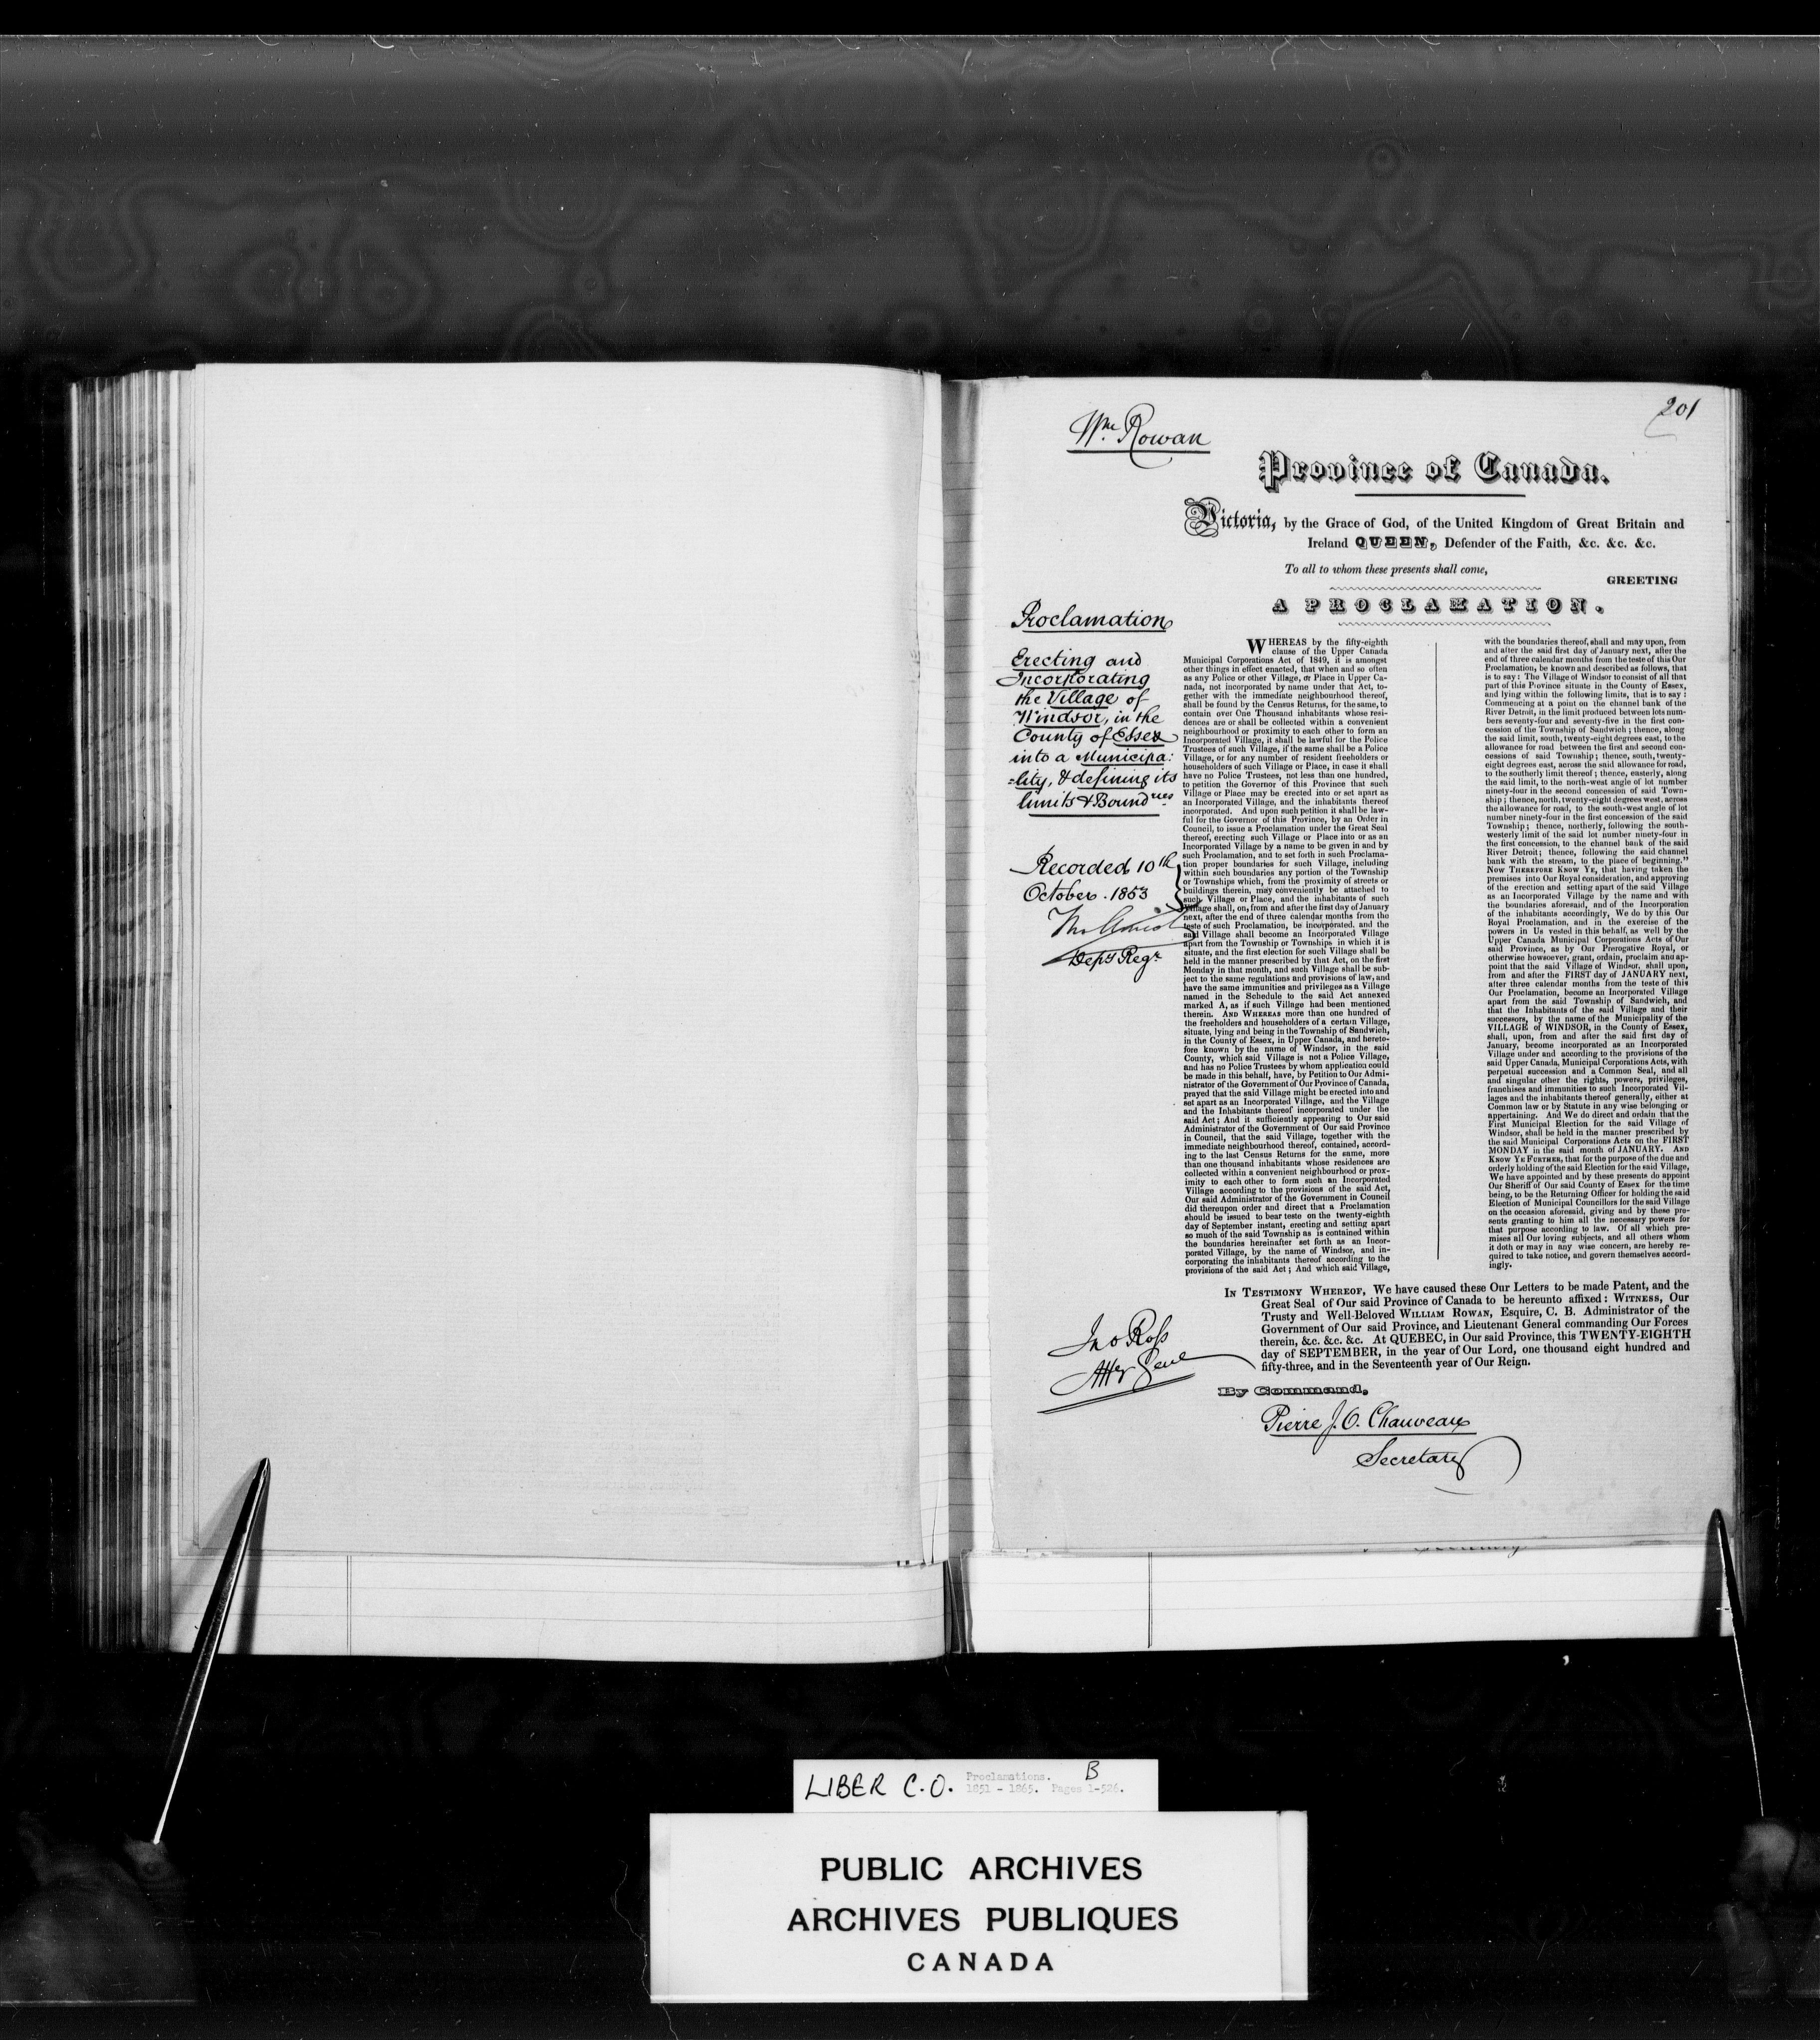 201
Wm. Rowan
Province of Canada.
Victoria, by the Grace of God, of the United Kingdom of Great Britain and
Ireland QUEEN, Defender of the Faith, &c. &c. &c.
To all to whom these presents shall come,
GREETING
A PROCLAMATION.
Proclamation
Erecting and
Incorporating
the Village of
Windsor, in the
County of Essex
into a Municipa:
=lity, & defining its
limits & Boundries
Recorded 10th
October. 1853
Depy Regr
WHEREAS by the fifty-eighth
clause of the Upper Canada
Municipal Corporations Act of 1849, it is amongst
other things in effect enacted, that when and so often
as any Police or other Village, or Place in Upper Ca-
nada, not incorporated by name under that Act, to-
gether with the immediate neighbourhood thereof,
shall be found by the Census Returns, for the same, to
contain over One Thousand inhabitants whose resi-
dences are or shall be collected within a convenient
neighbourhood or proximity to each other to form an
Incorporated Village, it shall be lawful for the Police
Trustees of such Village, if the same shall be a Police
Village, or for any number of resident freeholders or
householders of such Village or Place, in case it shall
have no Police Trustees, not less than one hundred,
to petition the Governor of this Province that such
Village or Place may be erected into or set apart as
an Incorporated Village, and the inhabitants thereof
incorporated. And upon such petition it shall be law-
ful for the Governor of this Province, by an Order in
Council, to issue a Proclamation under the Great Seal
thereof, erecting such Village or Place into or as an
Incorporated Village by a name to be given in and by
such Proclamation, and to set forth in such Proclama-
tion proper boundaries for such Village, including
within such boundaries any portion of the Township
or Townships which, from the proximity of streets or
buildings therein, may conveniently be attached to
such Village or Place, and the inhabitants of such
Village shall, on, from and after the first day of January
next, after the end of three calendar months from the
teste of such Proclamation, be incorporated, and the
said Village shall become an Incorporated Village
apart from the Township or Townships in which it is
situate, and the first election for such Village shall be
held in the manner prescribed by that Act, on the first
Monday in that month, and such Village shall be sub-
ject to the same regulations and provisions of law, and
have the same immunities and privileges as a Village
named in the Schedule to the said Act annexed
marked A, as if such Village had been mentioned
therein. AND WHEREAS more than one hundred of
the freeholders and householders of a certain Village,
situate, lying and being in the Township of Sandwich,
in the County of Essex, in Upper Canada, and hereto-
fore known by the name of Windsor, in the said
County, which said Village is not a Police Village,
and has no Police Trustees by whom application could
be made in this behalf, have, by Petition to Our Admi-
nistrator of the Government of Our Province of Canada,
prayed that the said Village might be erected into and
set apart as an Incorporated Village, and the Village
and the Inhabitants thereof incorporated under the
said Act; And it sufficiently appearing to Our said
Administrator of the Government of Our said Province
in Council, that the said Village, together with the
immediate neighbourhood thereof, contained, accord-
ing to the last Census Returns for the same, more
than one thousand inhabitants whose residences are
collected within a convenient neighbourhood or prox-
imity to each other to form such an Incorporated
Village according to the provisions of the said Act,
Our said Administrator of the Government in Council
did thereupon order and direct that a Proclamation
should be issued to bear teste on the twenty-eighth
day of September instant, erecting and setting apart
so much of the said Township as is contained within
the boundaries hereinafter set forth as an Incor-
porated Village, by the name of Windsor, and in-
corporating the inhabitants thereof according to the
provisions of the said Act; And which said Village,
with the boundaries thereof, shall and may upon, from
and after the said first day of January next, after the
end of three calendar months from the teste of this Our
Proclamation, be known and described as follows, that
is to say: The Village of Windsor to consist of all that
part of this Province situate in the County of Essex,
and lying within the following limits, that is to say:
Commencing at a point on the channel bank of the
River Detroit, in the limit produced between lots num-
bers seventy-four and seventy-five in the first con-
cession of the Township of Sandwich; thence, along
the said limit, south, twenty-eight degrees east, to the
allowance for road between the first and second con-
cessions of said Township; thence, south, twenty-
eight degrees east, across the said allowance for road,
to the southerly limit thereof; thence, easterly, along
the said limit, to the north-west angle of lot number
ninety-four in the second concession of said Town-
ship; thence, north, twenty-eight degrees west, across
the allowance for road, to the south-west angle of lot
number ninety-four in the first concession of the said
Township; thence, northerly, following the south-
westerly limit of the said lot number ninety-four in
the first concession, to the channel bank of the said
River Detroit; thence, following the said channel
bank with the stream, to the place of beginning."
NOW THEREFORE KNOW YE, that having taken the
premises into Our Royal consideration, and approving
of the erection and setting apart of the said Village
as an Incorporated Village by the name and with
the boundaries aforesaid, and of the Incorporation
of the inhabitants accordingly, We do by this Our
Royal Proclamation, and in the exercise of the
powers in Us vested in this behalf, as well by the
Upper Canada Municipal Corporations Acts of Our
said Province, as by Our Prerogative Royal, or
otherwise howsoever, grant, ordain, proclaim and ap-
point that the said Village of Windsor, shall upon,
from and after the FIRST day of JANUARY next,
after three calendar months from the teste of this
Our Proclamation, become an Incorporated Village
apart from the said Township of Sandwich, and
that the Inhabitants of the said Village and their
successors, by the name of the Municipality of the
VILLAGE of WINDSOR, in the County of Essex,
shall, upon, from and after the said first day of
January, become incorporated as an Incorporated
Village under and according to the provisions of the
said Upper Canada, Municipal Corporations Acts, with
perpetual succession and a Common Seal, and all
and singular other the rights, powers, privileges,
franchises and immunities to such Incorporated Vil-
lages and the inhabitants thereof generally, either at
Common law or by Statute in any wise belonging or
appertaining. And We do direct and ordain that the
First Municipal Election for the said Village of
Windsor, shall be held in the manner prescribed by
the said Municipal Corporations Acts on the FIRST
MONDAY in the said month of JANUARY. AND
KNOW YE FURTHER, that for the purpose of the due and
orderly holding of the said Election for the said Village,
We have appointed and by these presents do appoint
Our Sheriff of Our said County of Essex for the time
being, to be the Returning Officer for holding the said
Election of Municipal Councillors for the said Village
on the occasion aforesaid, giving and by these pre-
sents granting to him all the necessary powers for
that purpose according to law. Of all which pre-
mises all Our loving subjects, and all others whom
it doth or may in any wise concern, are hereby re-
quired to take notice, and govern themselves accord-
ingly.
IN TESTIMONY WHEREOF, We have caused these Our Letters to be made Patent, and the
Great Seal of Our said Province of Canada to be hereunto affixed: WITNESS, Our
Trusty and Well-Beloved WILLIAM ROWAN, Esquire, C. B. Administrator of the
Government of Our said Province, and Lieutenant General commanding Our Forces
therein, &c. &c. &c. At QUEBEC, in Our said Province, this TWENTY-EIGHTH
day of SEPTEMBER, in the year of Our Lord, one thousand eight hundred and
fifty-three, and in the Seventeenth year of Our Reign.
Jno Ross
Atty Genl
By Command,
Pierre J. O. Chauveau
Secretary
LIBER C.O. Proclamations. B
1851 - 1865. Pages 1-526.
PUBLIC ARCHIVES
ARCHIVES PUBLIQUES
CANADA